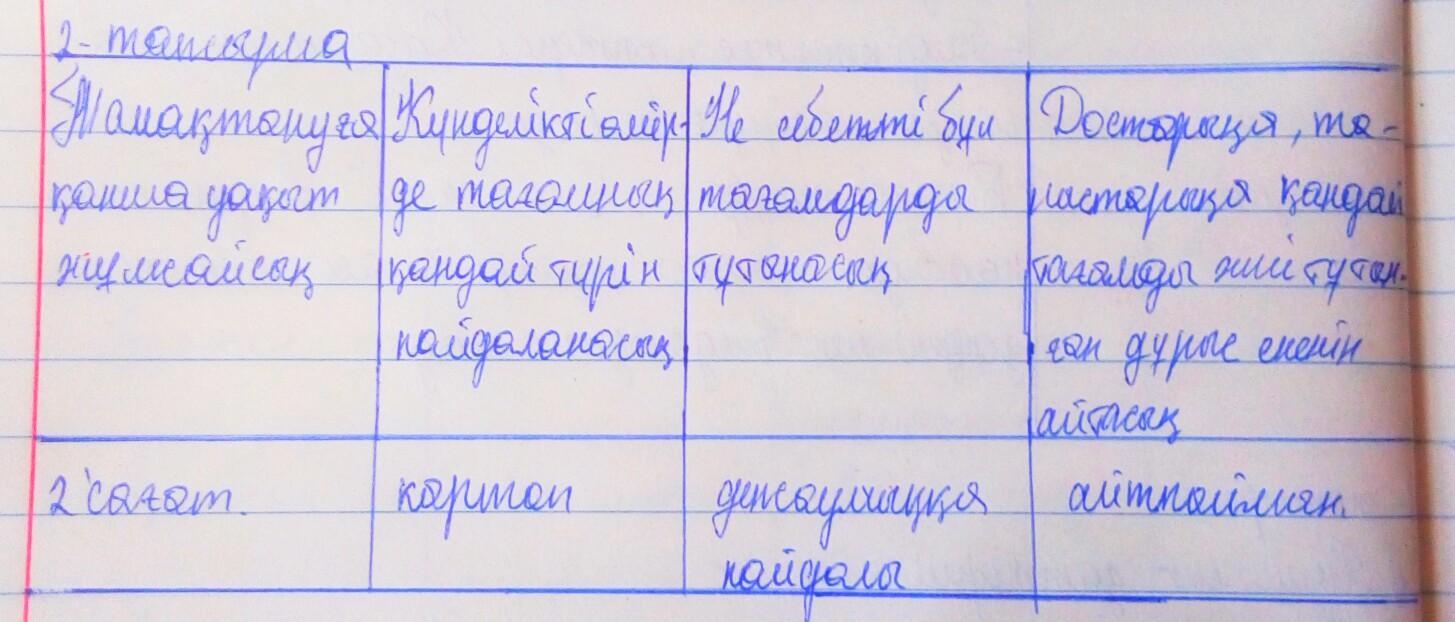 2-тапсырма
Тамақтануға
қанша уақыт
жұмсайсың
Күнделікті өмір-
де тағамның
қандай түрін
пайдаланасың
Не себепті бұл
тағамдарды
тұтынасың
Достарыңа, та-
ныстарыңа қандай
тағамды жиі тұтын-
ған дұрыс екенін
айтасың
2 сағат.
картоп
денсаулыққа
пайдалы
айтпаймын.